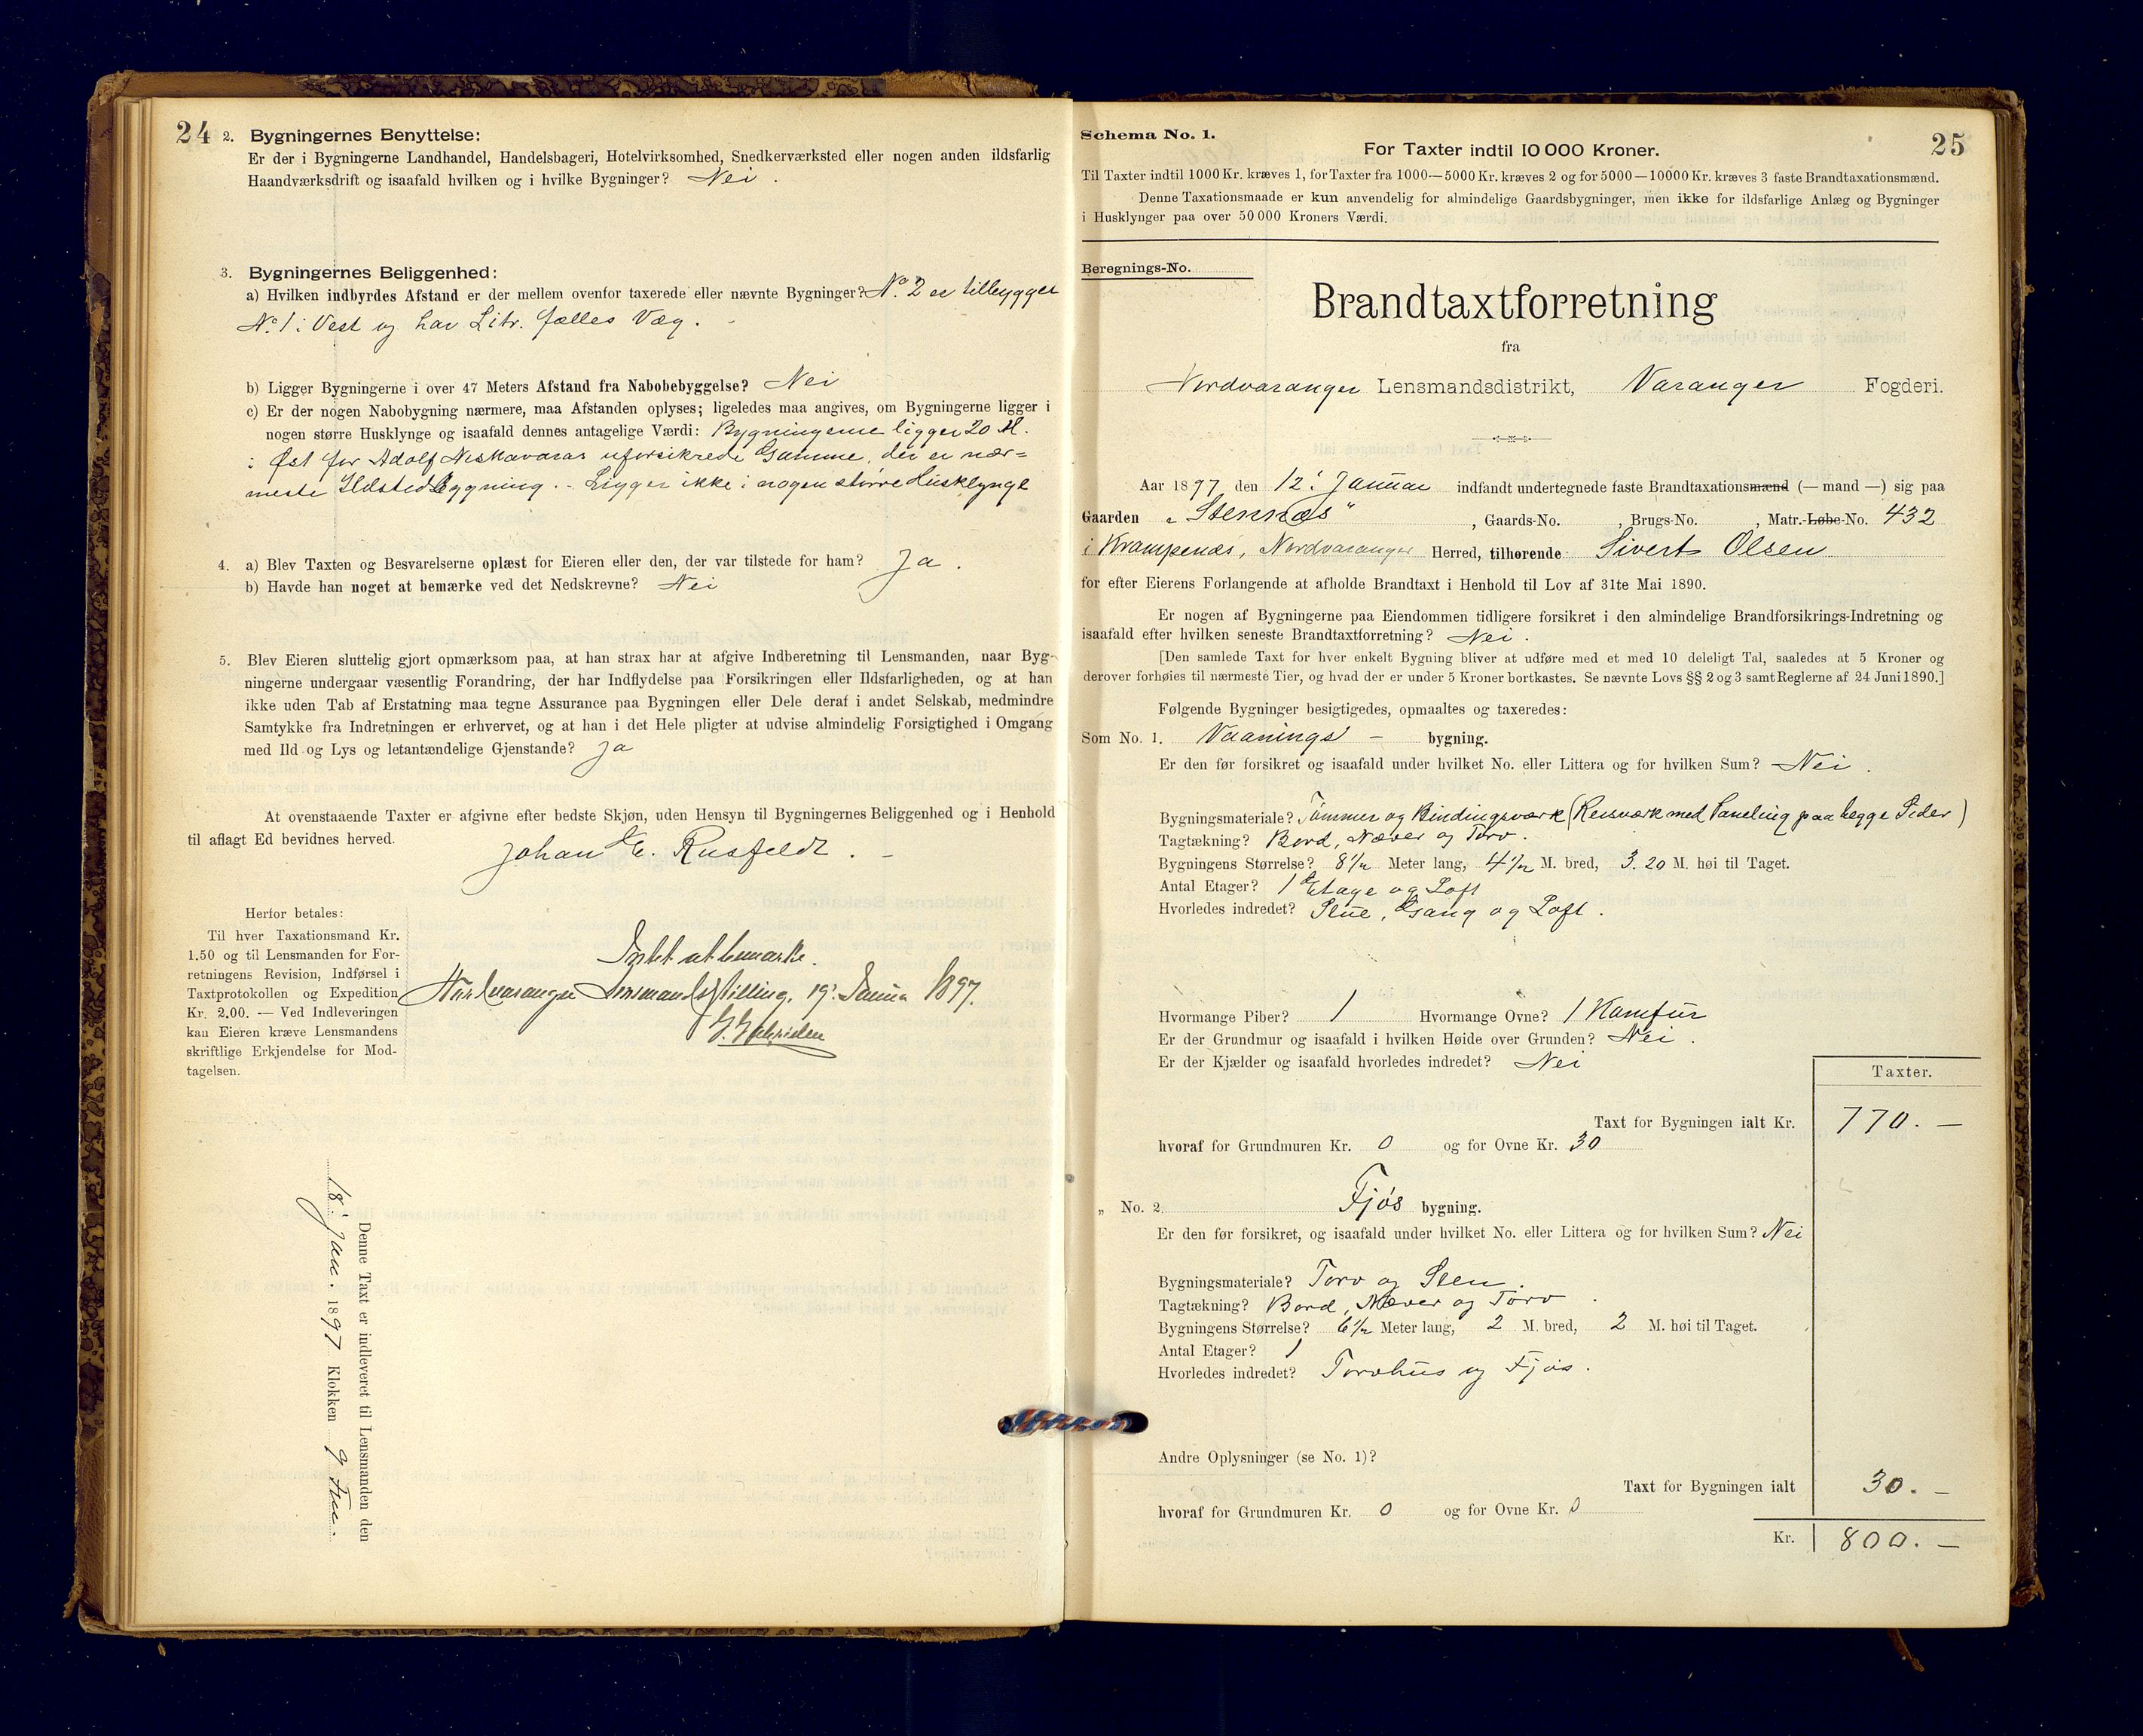 24
2. Bygningernes Benyttelse:
Er der i Bygningerne Landhandel, Handelsbageri, Hotelvirksomhed, Snedkerværksted eller nogen anden ildsfarlig
Haandværksdrift og isaafald hvilken og i hvilke Bygninger? Nei.
3. Bygningernes Beliggenhed:
a) Hvilken indbyrdes Afstand er der mellem ovenfor taxerede eller nævnte Bygninger? No. 2 er tilbygget
No. 1 i Vest og har fælles Væg. -
b) Ligger Bygningerne i over 47 Meters Afstand fra Nabobebyggelse? Nei
c) Er der nogen Nabobygning nærmere, maa Afstanden oplyses; ligeledes maa angives, om Bygningerne ligger i
nogen større Husklynge og isaafald dennes antagelige Værdi: Bygningerne ligger 20 M.
i Øst for Adolf Niskavaras uforsikrede Gamme, der er nær=
meste Ildstedsbygning. - Ligger ikke i nogen større Husklynge
4. a) Blev Taxten og Besvarelserne oplæst for Eieren eller den, der var tilstede for ham? Ja.
b) Havde han noget at bemærke ved det Nedskrevne? Nei
5. Blev Eieren sluttelig gjort opmærksom paa, at han strax har at afgive Indberetning til Lensmanden, naar Byg-
ningerne undergaar væsentlig Forandring, der har Indflydelse paa Forsikringen eller Ildsfarligheden, og at han
ikke uden Tab af Erstatning maa tegne Assurance paa Bygningen eller Dele deraf i andet Selskab, medmindre
Samtykke fra Indretningen er erhvervet, og at han i det Hele pligter at udvise almindelig Forsigtighed i Omgang
med Ild og Lys og letantændelige Gjenstande? Ja
At ovenstaaende Taxter er afgivne efter bedste Skjøn, uden Hensyn til Bygningernes Beliggenhed og i Henhold
til aflagt Ed bevidnes herved.
Johan E. Rusfeldt. -
Herfor betales:
Til hver Taxationsmand Kr.
1.50 og til Lensmanden for For-
retningens Revision, Indførsel i
Taxtprotokollen og Expedition
Kr. 2.00. — Ved Indleveringen
kan Eieren kræve Lensmandens
skriftlige Erkjendelse for Mod-
tagelsen.
Intet at bemærke.
Nordvaranger Lensmandsbestilling, 19. Januar 1897.
Denne Taxt er indleveret til Lensmanden den
18. Jan. 1897 Klokken 9 Fm.
25
Schema No. 1.
For Taxter indtil 10 000 Kroner.
Til Taxter indtil 1000 Kr. kræves 1, for Taxter fra 1000—5000 Kr. kræves 2 og for 5000—10000 Kr. kræves 3 faste Brandtaxationsmænd.
Denne Taxationsmaade er kun anvendelig for almindelige Gaardsbygninger, men ikke for ildsfarlige Anlæg og Bygninger
i Husklynger paa over 50 000 Kroners Værdi.
Beregnings-No.
Brandtaxtforretning
fra
Nordvaranger Lensmandsdistrikt, Varanger Fogderi.
Aar 1897 den 12. Januar indfandt undertegnede faste Brandtaxationsmænd (— mand —) sig paa
Gaarden „Stennæs“, Gaards-No. , Brugs-No. , Matr.-Løbe-No. 432
i Krampenæs, Nordvaranger Herred, tilhørende Sivert Olsen
for efter Eierens Forlangende at afholde Brandtaxt i Henhold til Lov af 31te Mai 1890.
Er nogen af Bygningerne paa Eiendommen tidligere forsikret i den almindelige Brandforsikrings-Indretning og
isaafald efter hvilken seneste Brandtaxtforretning? Nei.
[Den samlede Taxt for hver enkelt Bygning bliver at udføre med et med 10 deleligt Tal, saaledes at 5 Kroner og
derover forhøies til nærmeste Tier, og hvad der er under 5 Kroner bortkastes. Se nævnte Lovs §§ 2 og 3 samt Reglerne af 24 Juni 1890.]
Følgende Bygninger besigtigedes, opmaaltes og taxeredes:
Som No. 1. Vaanings - bygning.
Er den før forsikret og isaafald under hvilket No. eller Littera og for hvilken Sum? Nei.
Bygningsmateriale? Tømmer og Bindingsværk (Reisværk med Paneling paa begge Sider)
Tagtækning? Bord, Næver og Torv.
Bygningens Størrelse? 8 1/2 Meter lang, 4 1/2 M. bred, 3.20 M. høi til Taget.
Antal Etager? 1 Etage og Loft
Hvorledes indredet? Stue, Gang og Loft.
Hvormange Piber? 1 Hvormange Ovne? 1 Komfur
Er der Grundmur og isaafald i hvilken Høide over Grunden? Nei.
Er der Kjælder og isaafald hvorledes indredet? Nei
Taxter.
Taxt for Bygningen ialt Kr. 770. —
hvoraf for Grundmuren Kr. 0 og for Ovne Kr. 30
„ No. 2. Fjøs bygning.
Er den før forsikret, og isaafald under hvilket No. eller Littera og for hvilken Sum? Nei
Bygningsmateriale? Torv og Sten.
Tagtækning? Bord, Næver og Torv.
Bygningens Størrelse? 6 1/2 Meter lang, 2 M. bred, 2 M. høi til Taget.
Antal Etager? 1
Hvorledes indredet? Torvhus og Fjøs.
Andre Oplysninger (se No. 1)?
Taxt for Bygningen ialt 30. —
hvoraf for Grundmuren Kr. 0 og for Ovne Kr. 0
Kr. 800. —